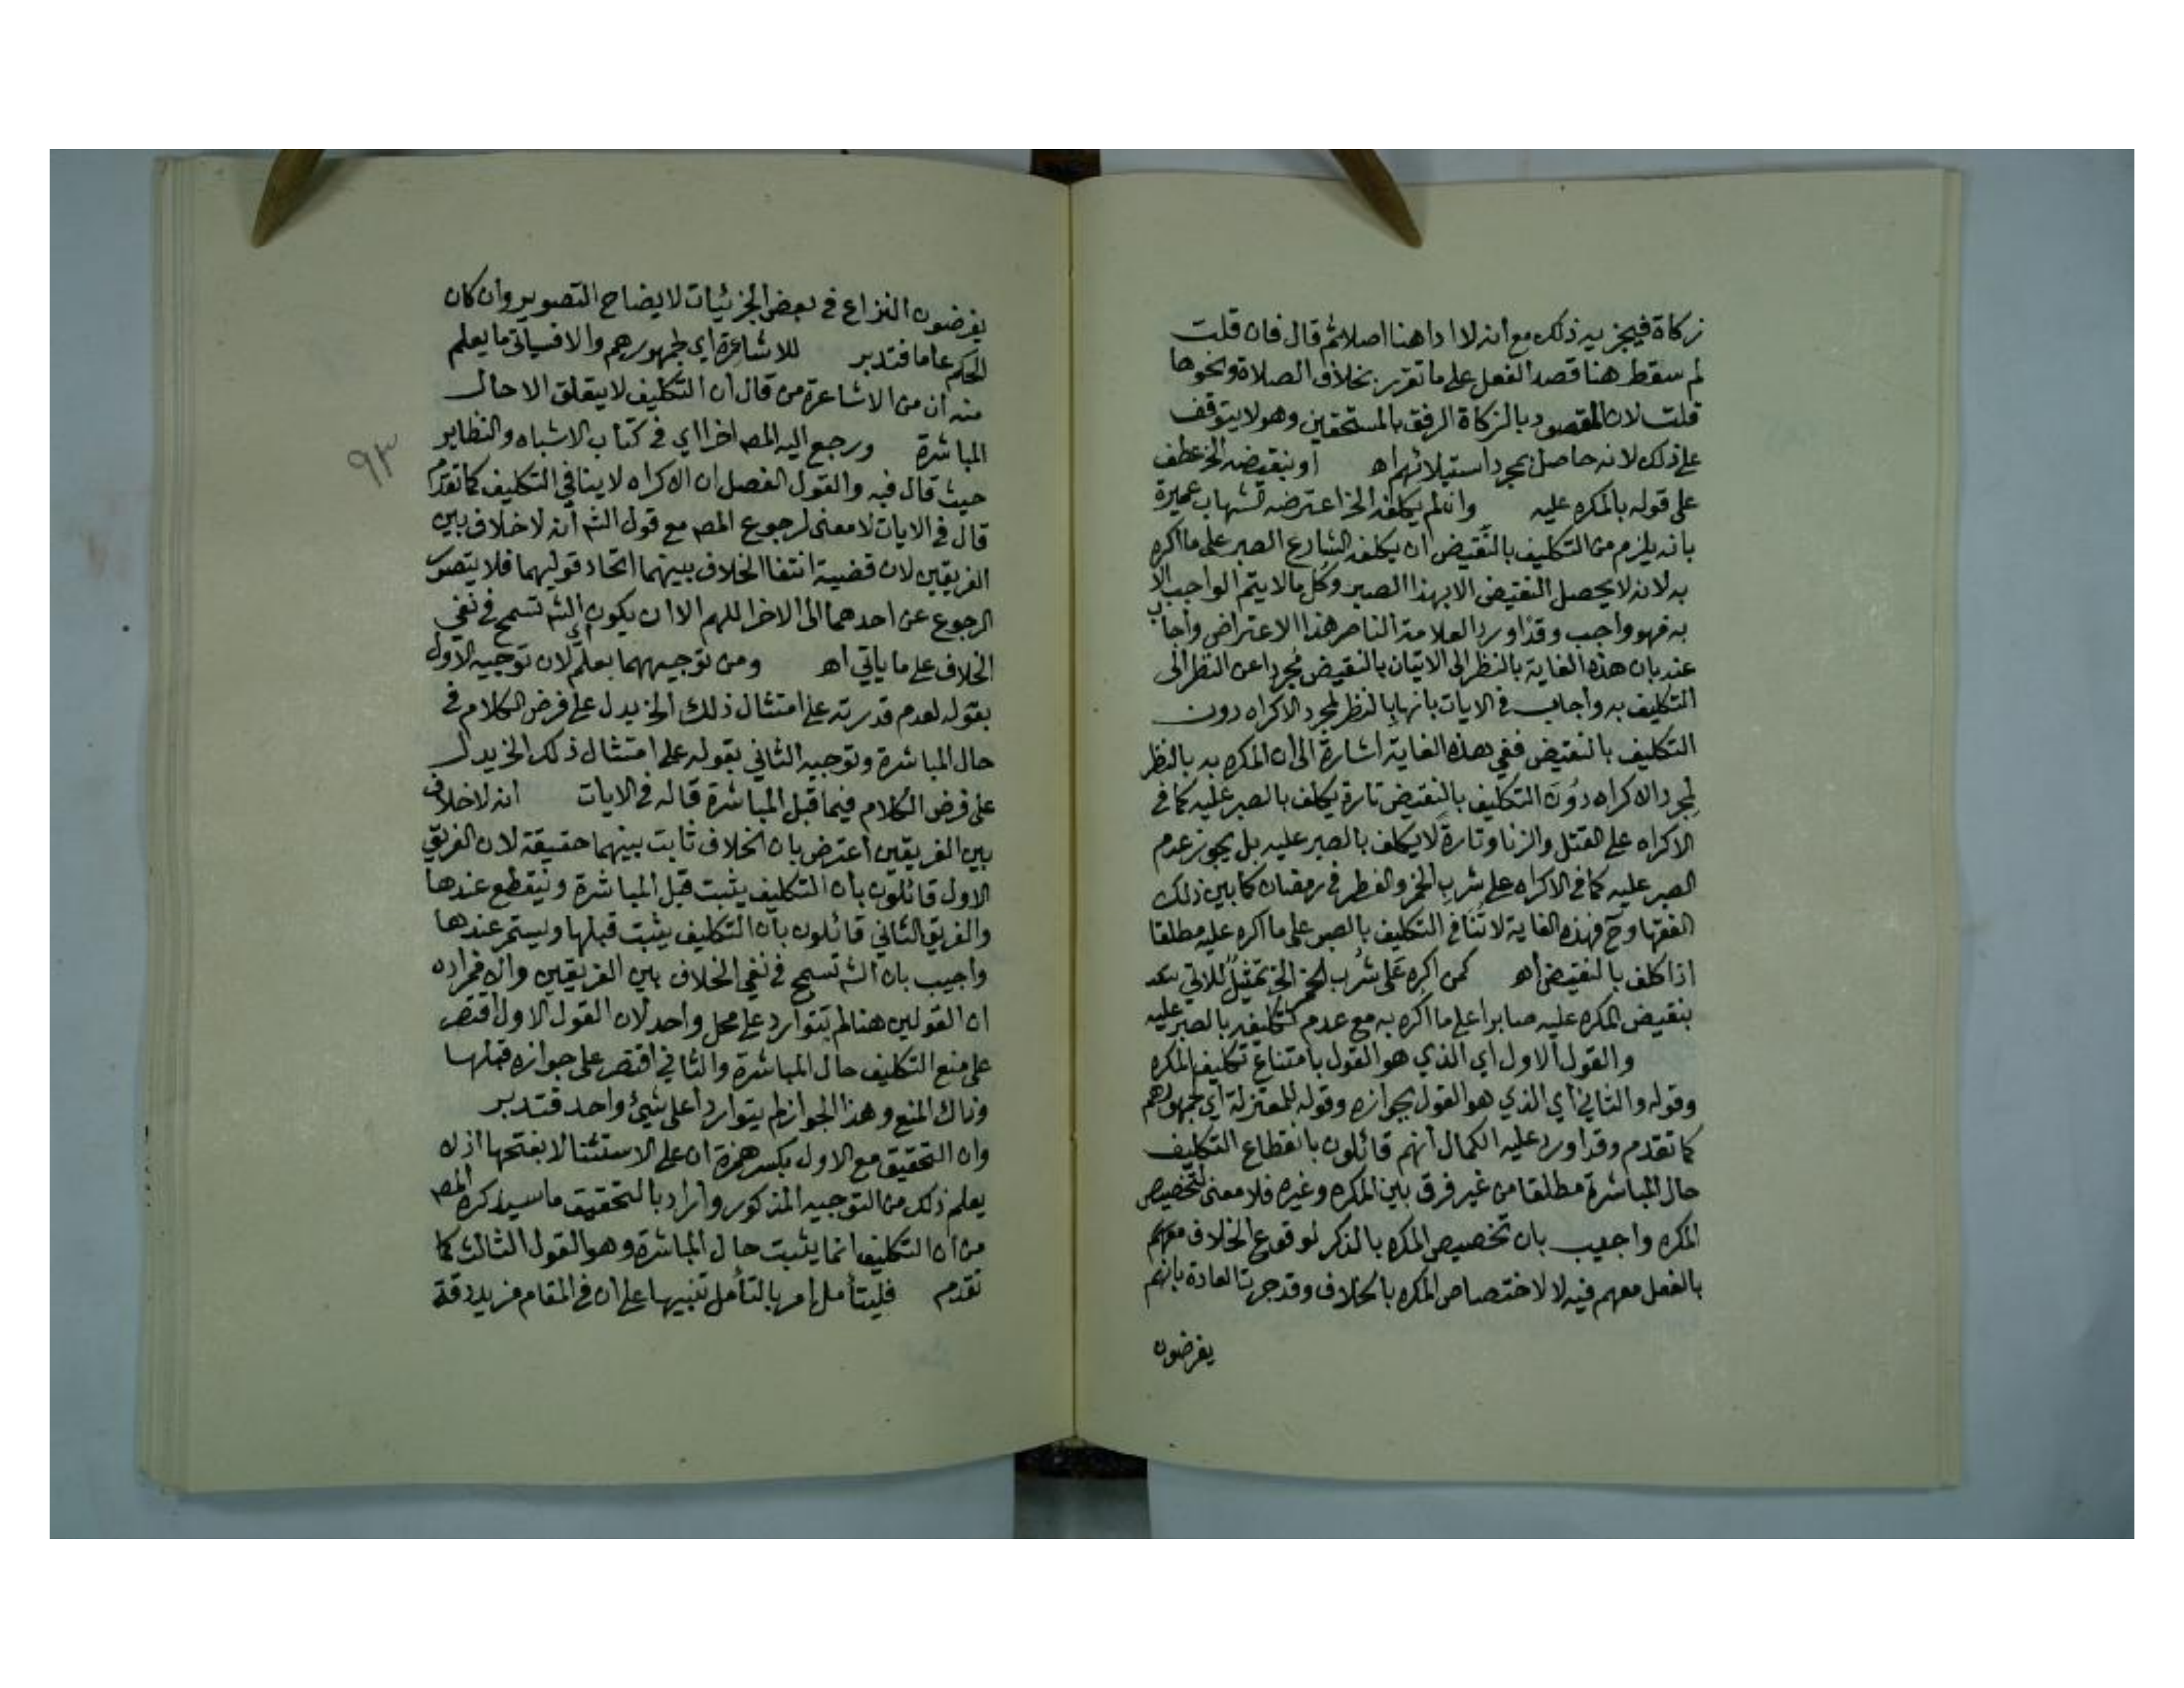 زكاة فيجزيه ذلك مع انه لا ادا هنا اصلا ثم قال فان قلت
لم سقط هنا قصد الفعل على ما تقرر بخلاف الصلاة ونحوها
قلت لان المقصود بالزكاة الرفق بالمستحقين وهو لا يتوقف
على ذلك لانه حاصل بمجرد استيلائهم اه او بنقيضه الخ عطف
على قوله بالمكره عليه وان لم يكلفه الخ اعترضه الشهاب عميرة
بانه يلزم من التكليف بالنقيض ان يكلفه الشارع الصبر على ما اكره
به لانه لا يحصل النقيض الا بهذا الصبر وكل ما لا يتم الواجب الا
به فهو واجب وقد اورد العلامة الناصر هذا الاعتراض واجاب
عنه بان هذه الغاية بالنظر الى الاتيان بالنقيض مجردا عن النظر الى
التكليف به واجاب في الايات بانها بالنظر لمجرد الاكراه دون
التكليف بالنقيض ففي هذه الغاية اشارة الى ان المكره به بالنظر
لمجرد الاكراه دون التكليف بالنقيض تارة يكلف بالصبر عليه كما في
الاكراه على القتل والزنا وتارة لا يكلف بالصبر عليه بل يجوز عدم
الصبر عليه كما في الاكراه على شرب الخمر والفطر في رمضان كما بين ذلك
الفقها وح فهذه الغاية لا تنافي التكليف بالصبر على ما اكره عليه مطلقا
اذا كلف بالنقيض اه كمن اكره على شرب الخمر الخ تمثيل للاتي
بنقيض المكره عليه صابرا على ما اكره به مع عدم تكليفه بالصبر عليه
والقول الاول اي الذي هو القول بامتناع تكليف المكره
وقوله والثاني اي الذي هو القول بجوازه وقوله للمعتزلة اي جمهورهم
كما تقدم وقد اورد عليه الكمال انهم قائلون بانقطاع التكليف
حال المباشرة مطلقا من غير فرق بين المكره وغيره فلا معنى لتخصيص
المكره واجيب بان تخصيص المكره بالذكر لوقوع الخلاف معهم
بالفعل معهم فيه لا لاختصاص المكره بالخلاف وقد جرت العادة بانهم
يفرضون
يفرضون النزاع في بعض الجزئيات لايضاح التصوير وان كان
الحكم عاما فتدبر للاشاعرة اي لجمهورهم والا فسياتي ما يعلم
منه ان من الاشاعرة من قال ان التكليف لا يتعلق الا حال
المباشرة ورجع اليه المصـ اخرا اي في كتاب الاشباه والنظاير
حيث قال فيه والقول الفصل ان الاكراه لا ينافي التكليف كما تقدم
قال في الايات لا معنى لرجوع المصـ مع قول الشـ انه لا خلاف بين
الفريقين لان قضية انتفا الخلاف بينهما اتحاد قوليهما فلا يتصور
الرجوع عن احدهما الى الاخر اللهم الا ان يكون الشـ تسمح في نفي
الخلاف على ما ياتي اه ومن توجيههما يعلم اي لان توجيه الاول
بقوله لعدم قدرته على امتثال ذلك الخ يدل على فرض الكلام في
حال المباشرة وتوجيه الثاني بقوله على امتثال ذلك الخ يدل
على فرض الكلام فيما قبل المباشرة قاله في الايات انه لا خلاف
بين الفريقين اعترض بان الخلاف ثابت بينهما حقيقة لان الفريق
الاول قائلون بان التكليف يثبت قبل المباشرة وينقطع عندها
والفريق الثاني قائلون بان التكليف يثبت قبلها ويستمر عندها
واجيب بان الشـ تسمح في نفي الخلاف بين الفريقين والا فمراده
ان القولين هنا لم يتواردا على محل واحد لان القول الاول اقتصر
على منع التكليف حال المباشرة والثاني اقتصر على جوازه قبلها
وذاك المنع وهذا الجواز لم يتواردا على شيئ واحد فتدبر
وان التحقيق مع الاول بكسر همزة ان على الاستئنا لا بفتحها اذ لا
يعلم ذلك من التوجيه المذكور واراد بالتحقيق ما سيذكره المصـ
من ان التكليف انما يثبت حال المباشرة وهو القول الثالث كما
تقدم فليتأمل امر بالتأمل تنبيها على ان في المقام مزيد دقة
٩٣